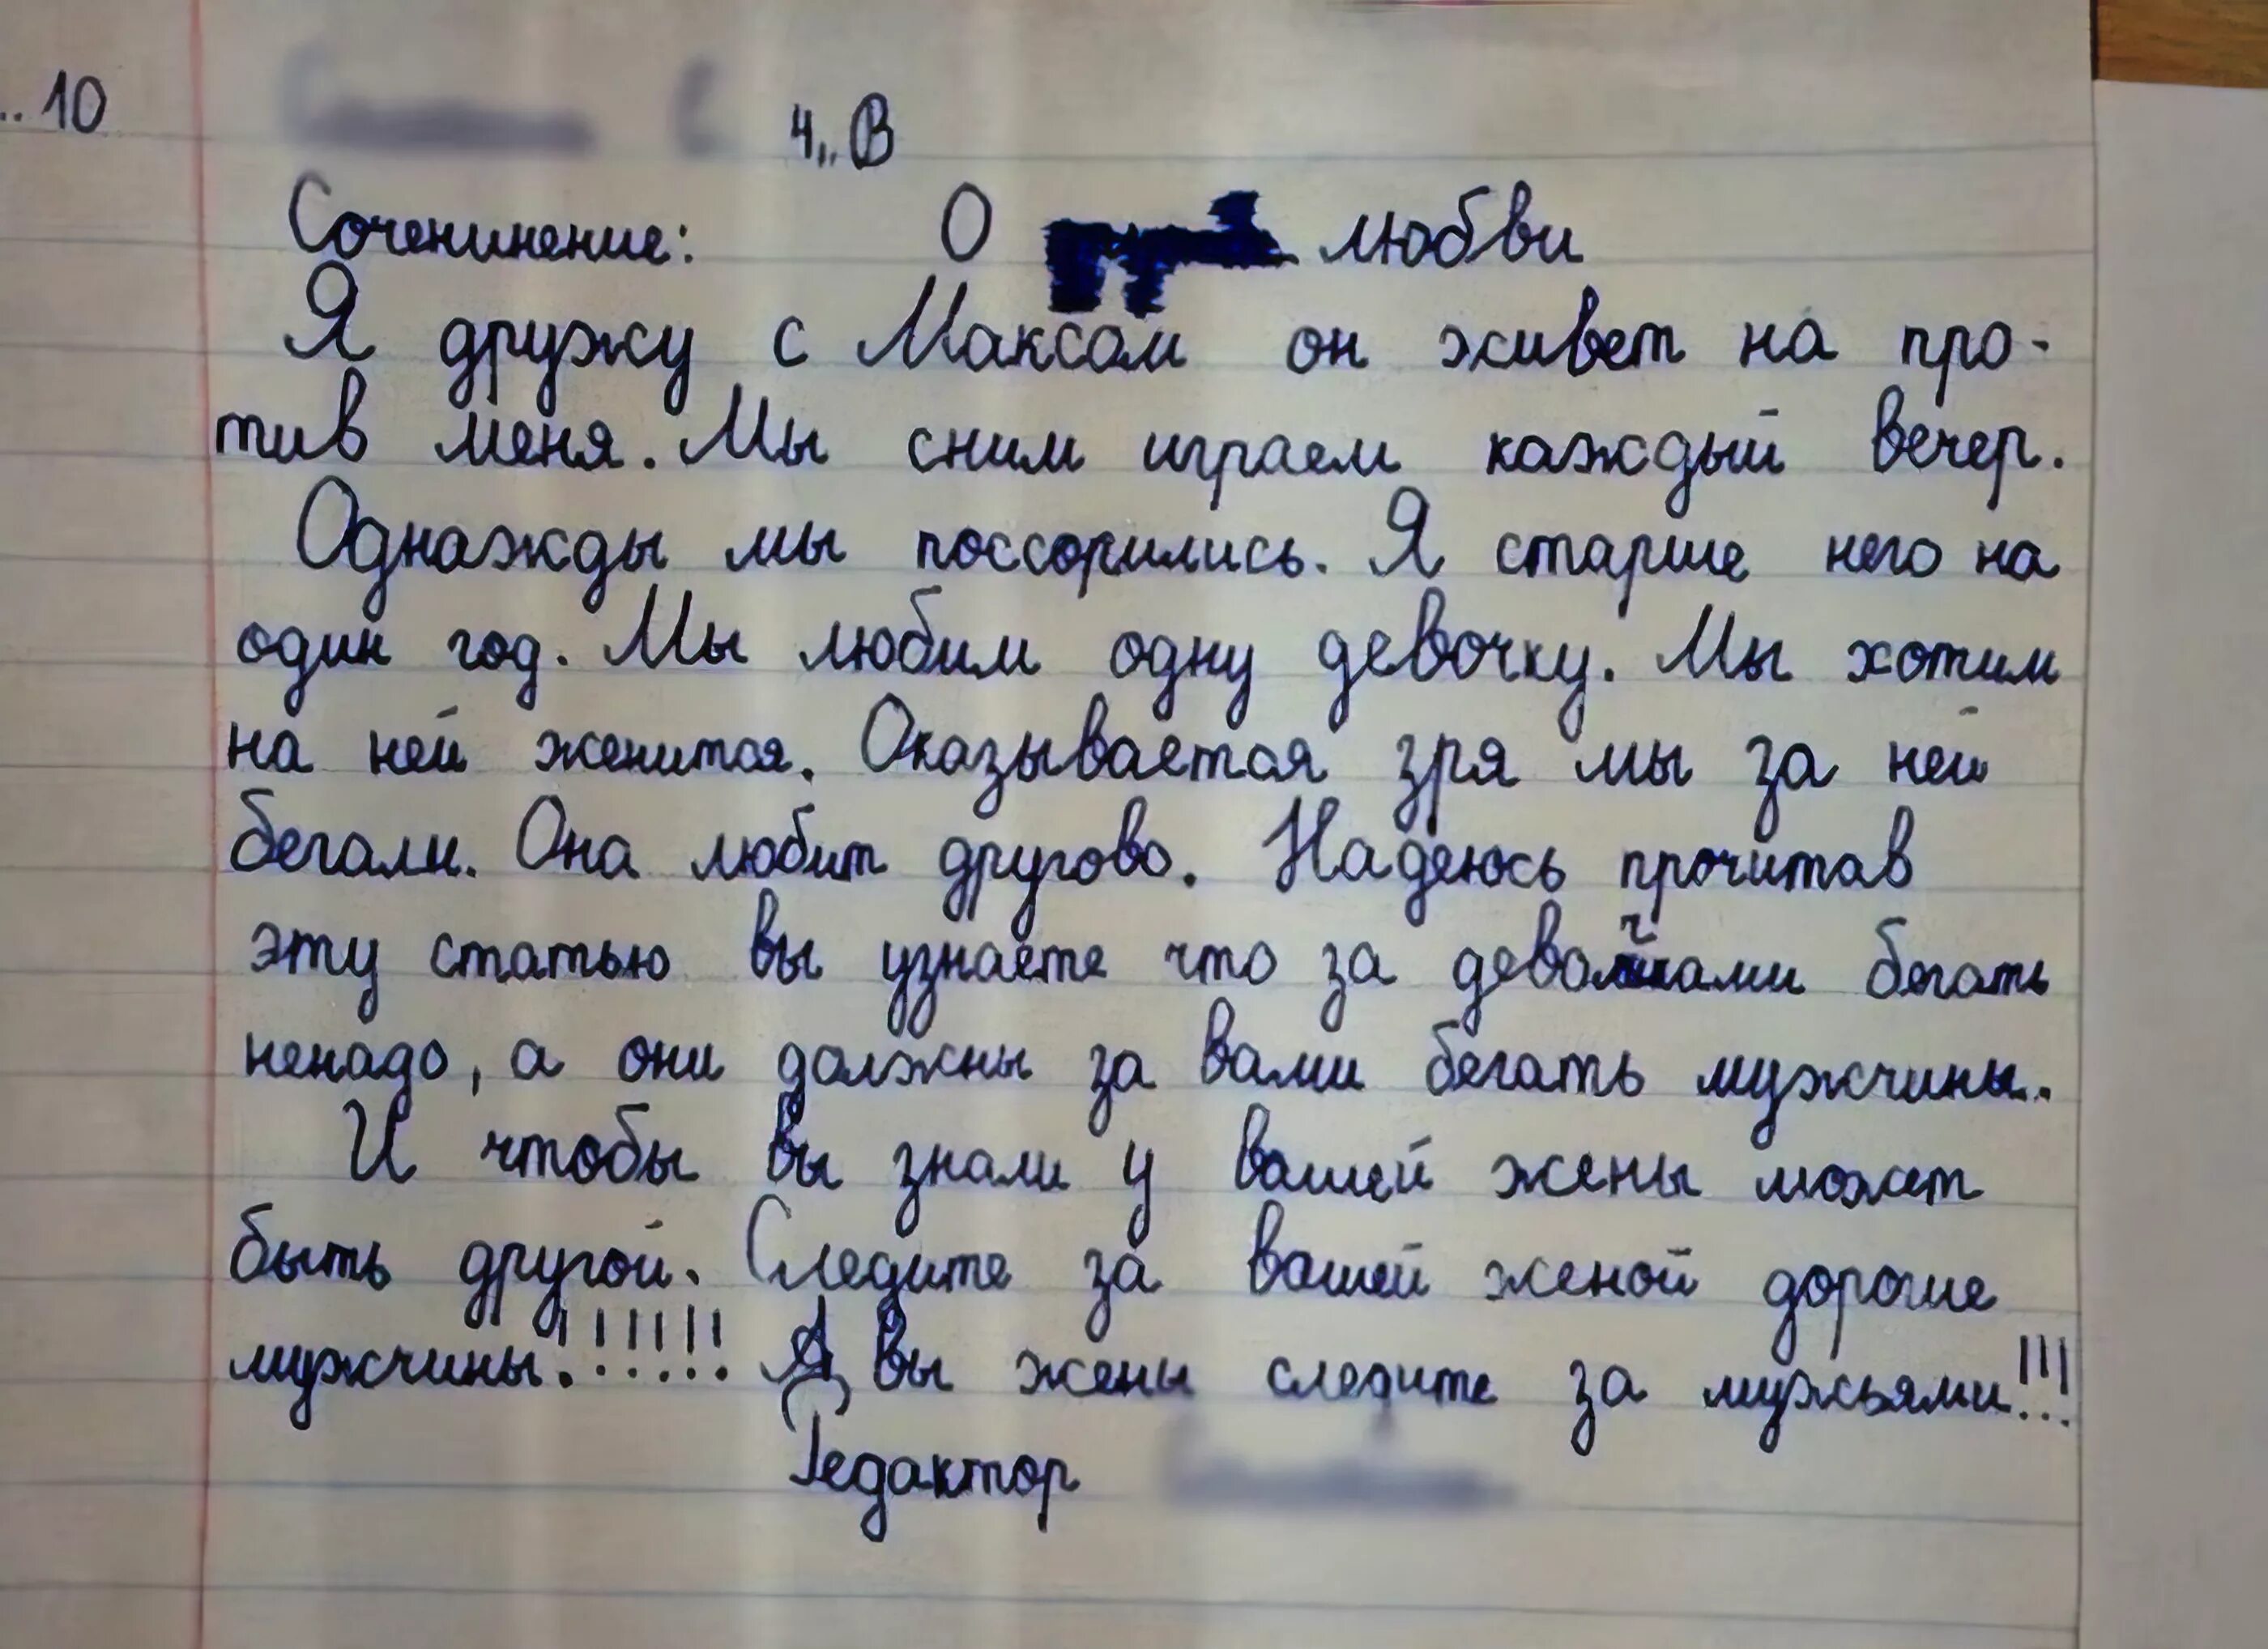 ..10
4„В
Соченинение: О любви
Я дружу с Максам он живет на про-
тив меня. Мы сним играем каждый вечер.
Однажды мы поссорились. Я старше него на
один год. Мы любим одну девочку. Мы хотим
на ней женитая. Оказываетая зря мы за ней
бегали. Она любит другово. Надеюсь прочитав
эту статью вы узнаете что за девочками бегать
ненадо, а они должны за вами бегать мужчины.
И чтобы вы знали у вашей жены может
быть другой. Следите за вашей женой дорогие
мужчины!!!!!! А вы жены следите за мужьями!!!
Редактор